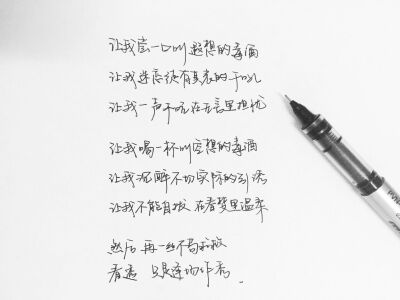 让我尝一口叫遐想的毒酒
让我迷恋徒有其表的于吼
让我一声于吼在无言里担忧
让我喝一杯叫空想的毒酒
让我沉醉不切实际的引诱
让我不能自拔 在春梦里温柔
然后 再一丝不苟
看透 只是逢场作秀。